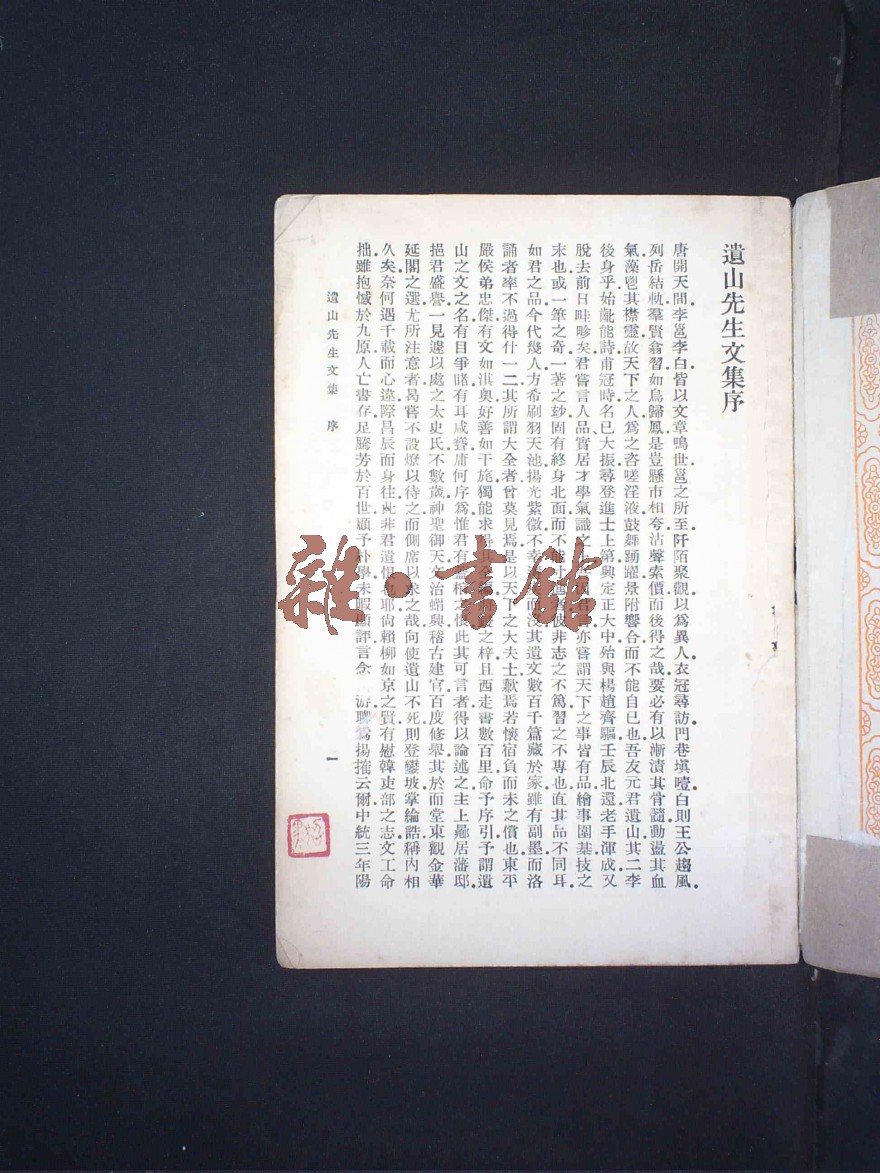 遺山先生文集序
唐開天間李邕李白皆以文章鳴世邕之所至阡陌聚觀以爲異人衣冠尋訪門巷塡噎白則王公趨風
列岳結軌羣賢翕習如鳥歸鳳是豈懸市相夸沽聲索價而後得之哉要必有以漸漬其骨髓動盪其血
氣藻鬯其襟靈故天下之人爲之咨嗟淫液鼓舞踴躍景附響合而不能自已也吾友元君遺山其二李
後身乎始齔能詩甫冠時名已大振尋登進士上第興定正大中殆與楊趙齊驅壬辰北還老手渾成又
脫去前日畦畛矣君嘗言人品實居才學氣識之上亦嘗謂天下之事皆有品繪事圍棊技之
末也或一筆之奇一著之玅固有終身北面而不能非志之不篤習之不專也直其品不同耳
如君之品今代幾人方希刷羽天池揚光紫微不幸而沒其遺文數百千篇藏於家雖有副墨而洛
誦者率不過得什一二其所謂大全者曾莫見焉是以天下之大夫士歉焉若懷宿負而未之償也東平
嚴侯弟忠傑有文如淇奥好善如干旄獨能求之梓且西走書數百里命予序引予謂遺
山之文之名有目爭睹有耳咸聳庸何序爲惟君有此其可言者得以論述之主上龝居藩邸
挹君盛譽一見遽以處之太史氏不數歲神聖御天文治蝟興稽古建官百度修舉其於而堂東觀金華
延閣之選尤所注意者曷嘗不設燎以待之而側席以求之哉向使遺山不死則登鑾坡掌綸誥稱內相
久矣奈何遇千載而心違際昌辰而身往此非君遺恨也耶尙賴柳如京之賢有慰韓吏部之志文工命
拙雖抱憾於九原人亡書存足騰芳於百世顧予朴學未暇評言念游聊爲揚搉云爾中統三年陽
遺山先生文集 序
一
雜·書館